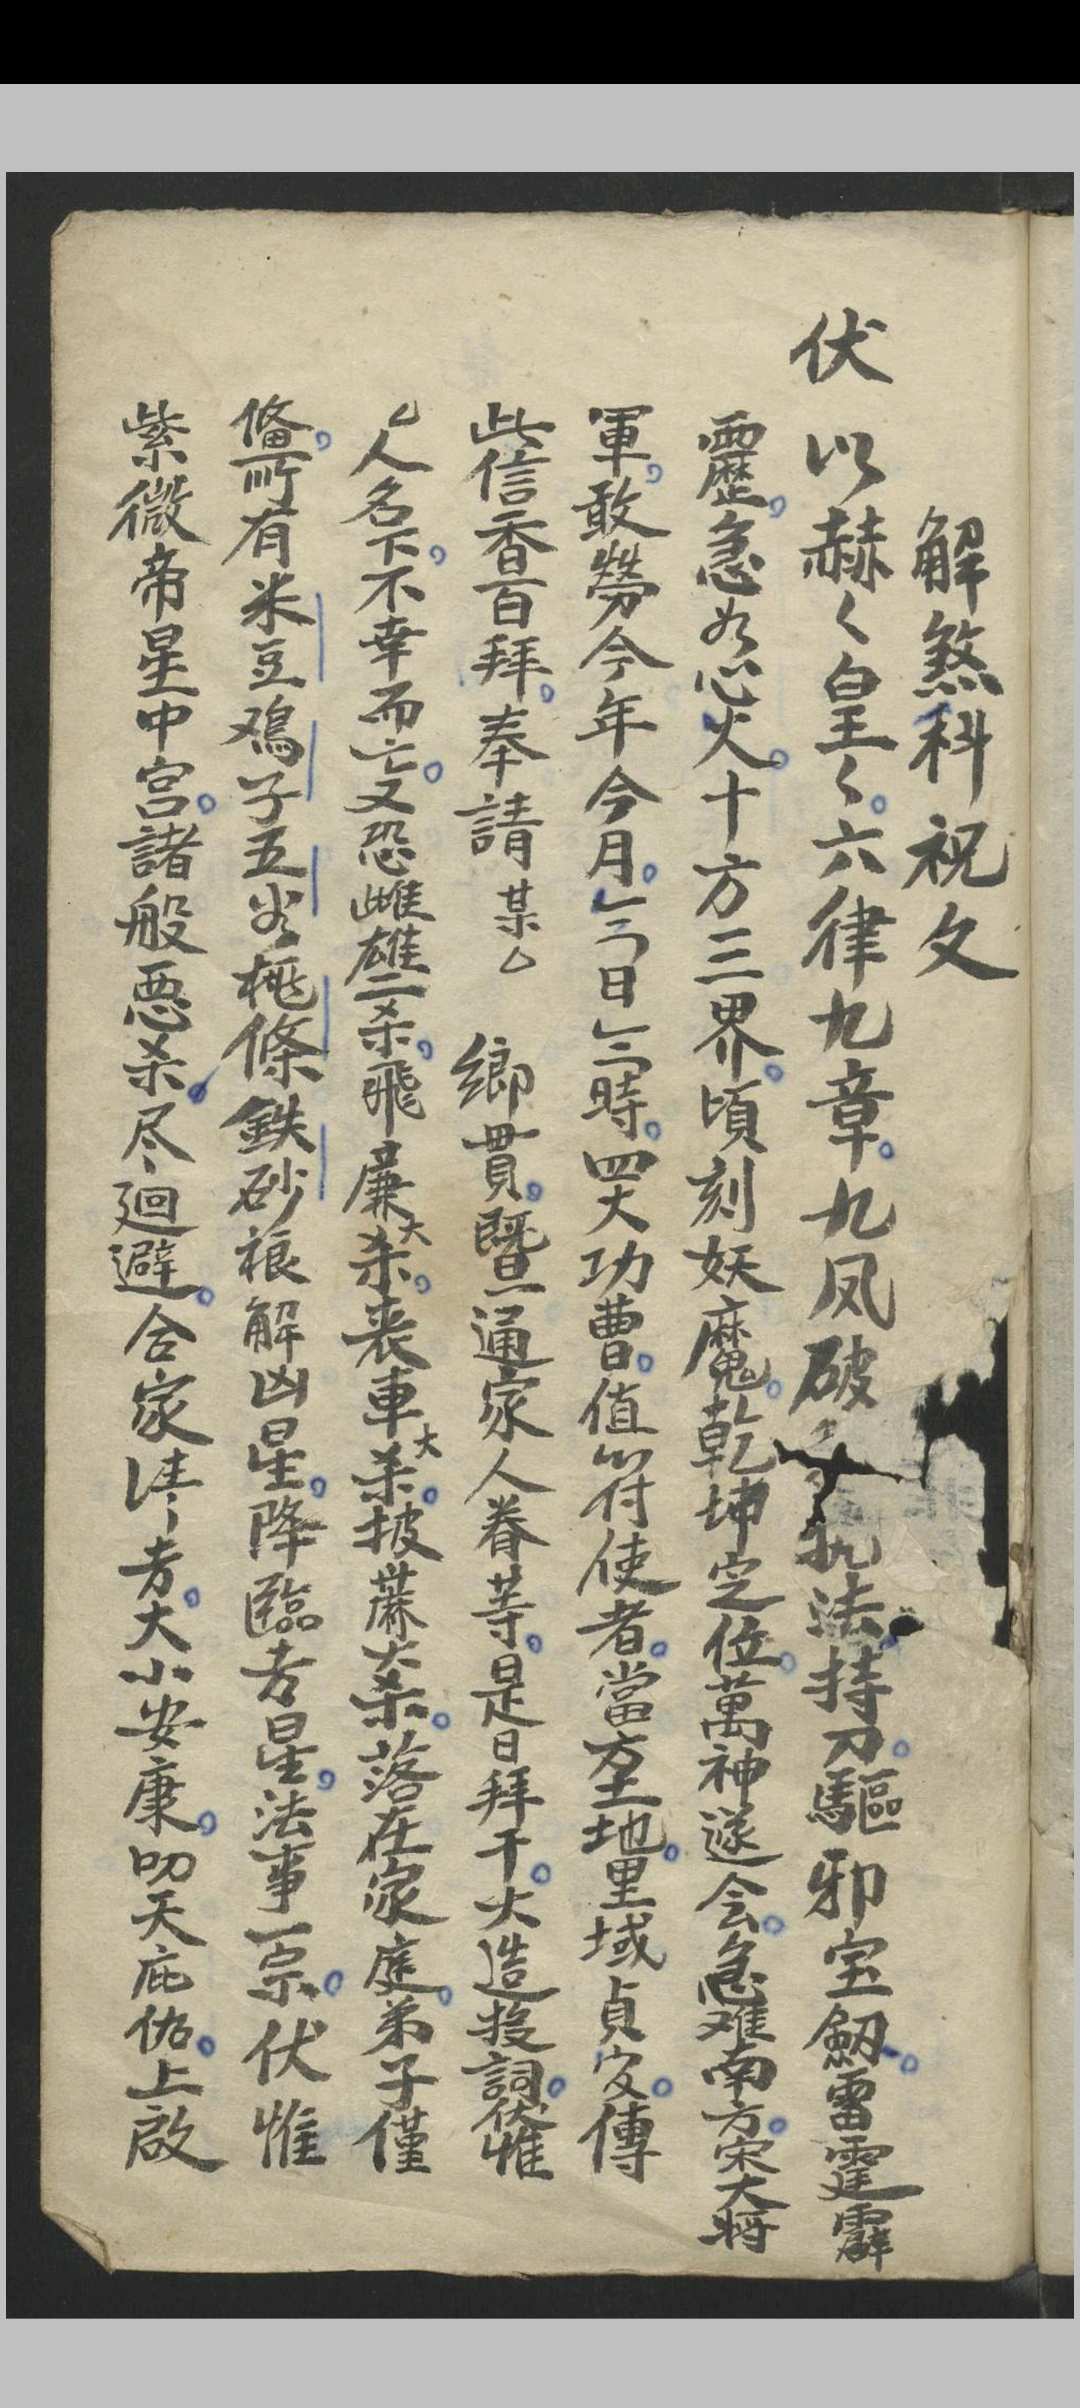 解煞科祝文
伏 以赫々皇々六律九章九凤破 执法持刀驅邪宝劔雷霆霹
靂急如心火十方三界頃刻妖魔乾坤定位萬神遂会急难南方宋大将
軍敢勞今年今月今日今時四大功曹值符使者當方土地里域貞官傳
此信香百拜奉請某厶 鄉貫暨通家人眷等是日拜干大造投詞伏惟
厶人名下不幸而亡又恐雌雄二杀飛廉大杀丧車大杀披蔴大杀落在家庭弟子僅
俻所有米豆鳮子五谷桃條鉄砂禳解凶星降臨吉星法事一宗伏惟
紫微帝星中宫諸般悪杀尽廻避合家清吉大小安康叩天庇佑上啟